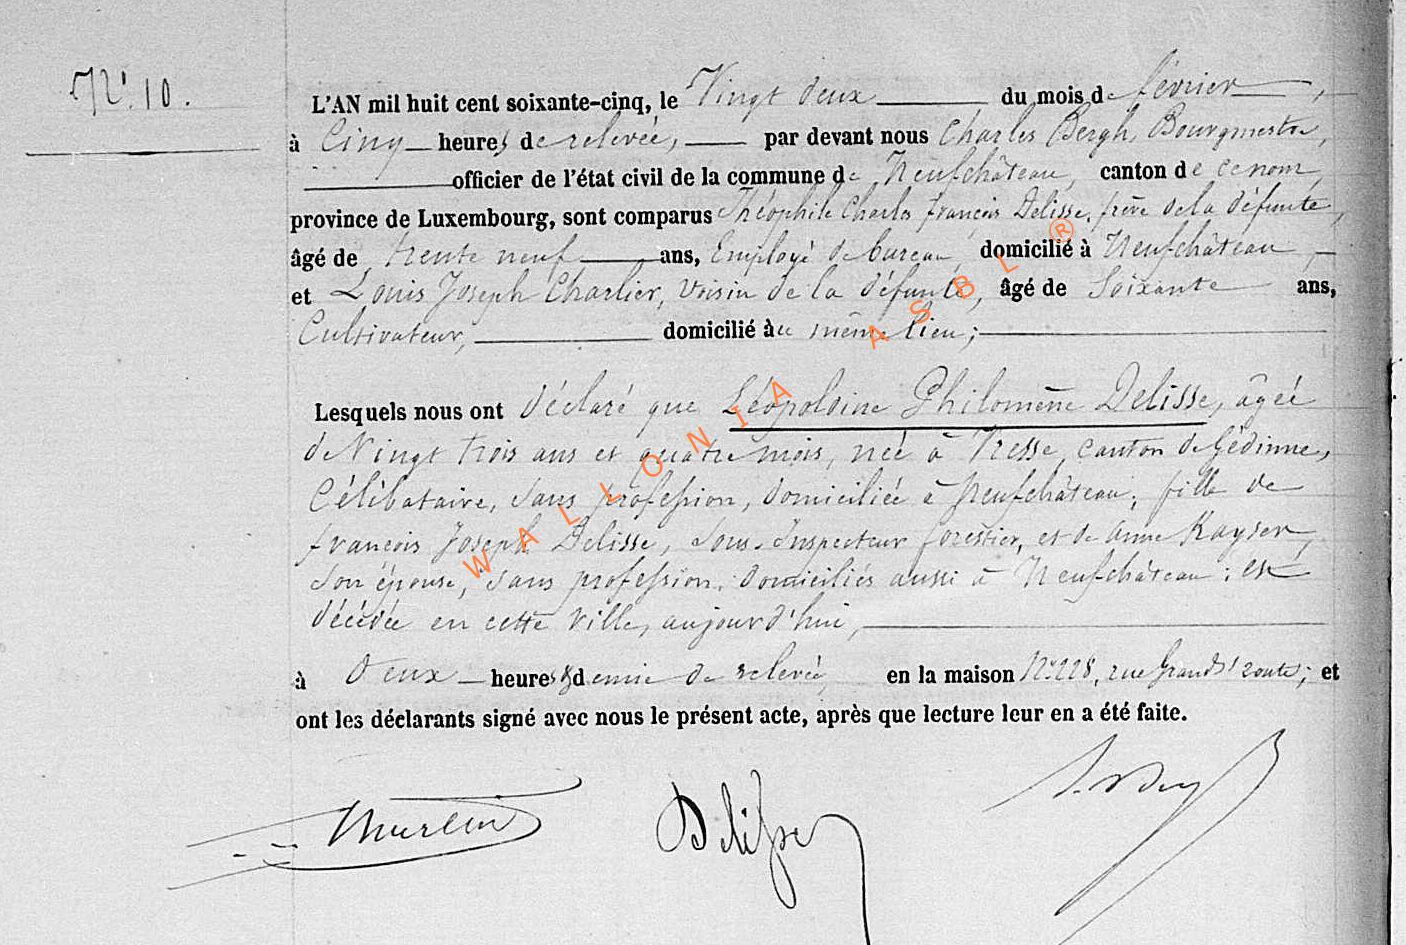 N° 10.
L'AN mil huit cent soixante-cinq, le Vingt deux du mois de février,
à Cinq heures de relevée, par devant nous Charles Bergh, Bourgmestre,
officier de l'état civil de la commune de Neufchâteau, canton de ce nom,
province de Luxembourg, sont comparus Théophile Charles françois Delisse, frère de la défunte,
âgé de trente neuf ans, Employé de bureau, domicilié à Neufchâteau,
et Louis Joseph Charlier, voisin de la défunte, âgé de Soixante ans,
Cultivateur, domicilié au même lieu;
Lesquels nous ont déclaré que Léopoldine Philomène Delisse, âgée
de Vingt trois ans et quatre mois, née à Vresse, canton de Gédinne,
Célibataire, sans profession, domiciliée à Neufchâteau, fille de
françois Joseph Delisse, Sous-Inspecteur forestier, et de Anne Kayser,
son épouse, sans profession, domiciliés aussi à Neufchâteau; est
décédée en cette ville, aujourd'hui,
à Deux heures & demie de relevée, en la maison N° 228, rue Grand'route; et
ont les déclarants signé avec nous le présent acte, après que lecture leur en a été faite.
Delisse
WALLONIA ASBL ®